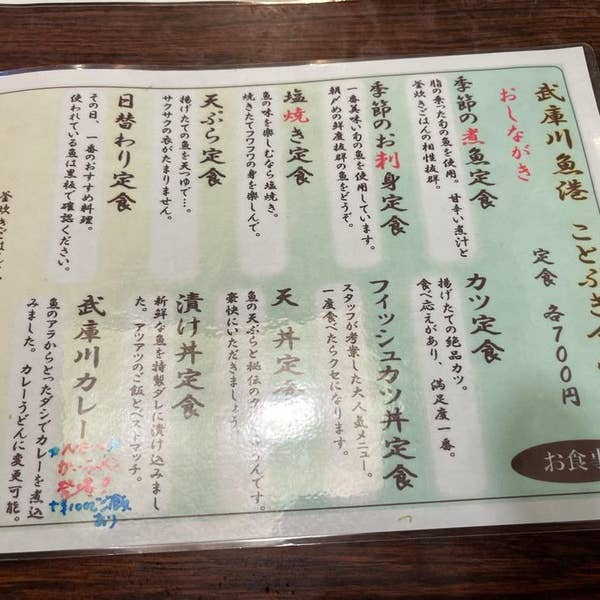 武庫川魚港 ことぶき
おしながき
定食 各700円
お食事
季節の煮魚定食
脂の乗った旬の魚を使用。甘辛い煮汁と
釜炊きごはんの相性抜群。
季節のお刺身定食
一番美味い旬の魚を使用しています。
朝〆めの鮮度抜群の魚をどうぞ。
塩焼き定食
魚の味を楽しむなら塩焼き。
焼きたてフワフワの身を楽しんで。
天ぷら定食
揚げたての魚を天つゆで…。
サクサクの衣がたまりません。
日替わり定食
その日、一番のおすすめ料理。
使われている魚は黒板で確認ください。
釜炊きごはん
カツ定食
揚げたての絶品カツ。
食べ応えがあり、満足度一番。
フィッシュカツ丼定食
スタッフが考案した大人気メニュー。
一度食べたらクセになります。
天 丼定食
魚の天ぷらと秘伝の
豪快にいただきましょう。
漬け丼定食
新鮮な魚を特製ダレに漬け込みまし
た。アツアツのご飯とベストマッチ。
武庫川カレー
魚のアラからとったダシでカレーを煮込
みました。カレーうどんに変更可能。
+¥100でご飯
あり